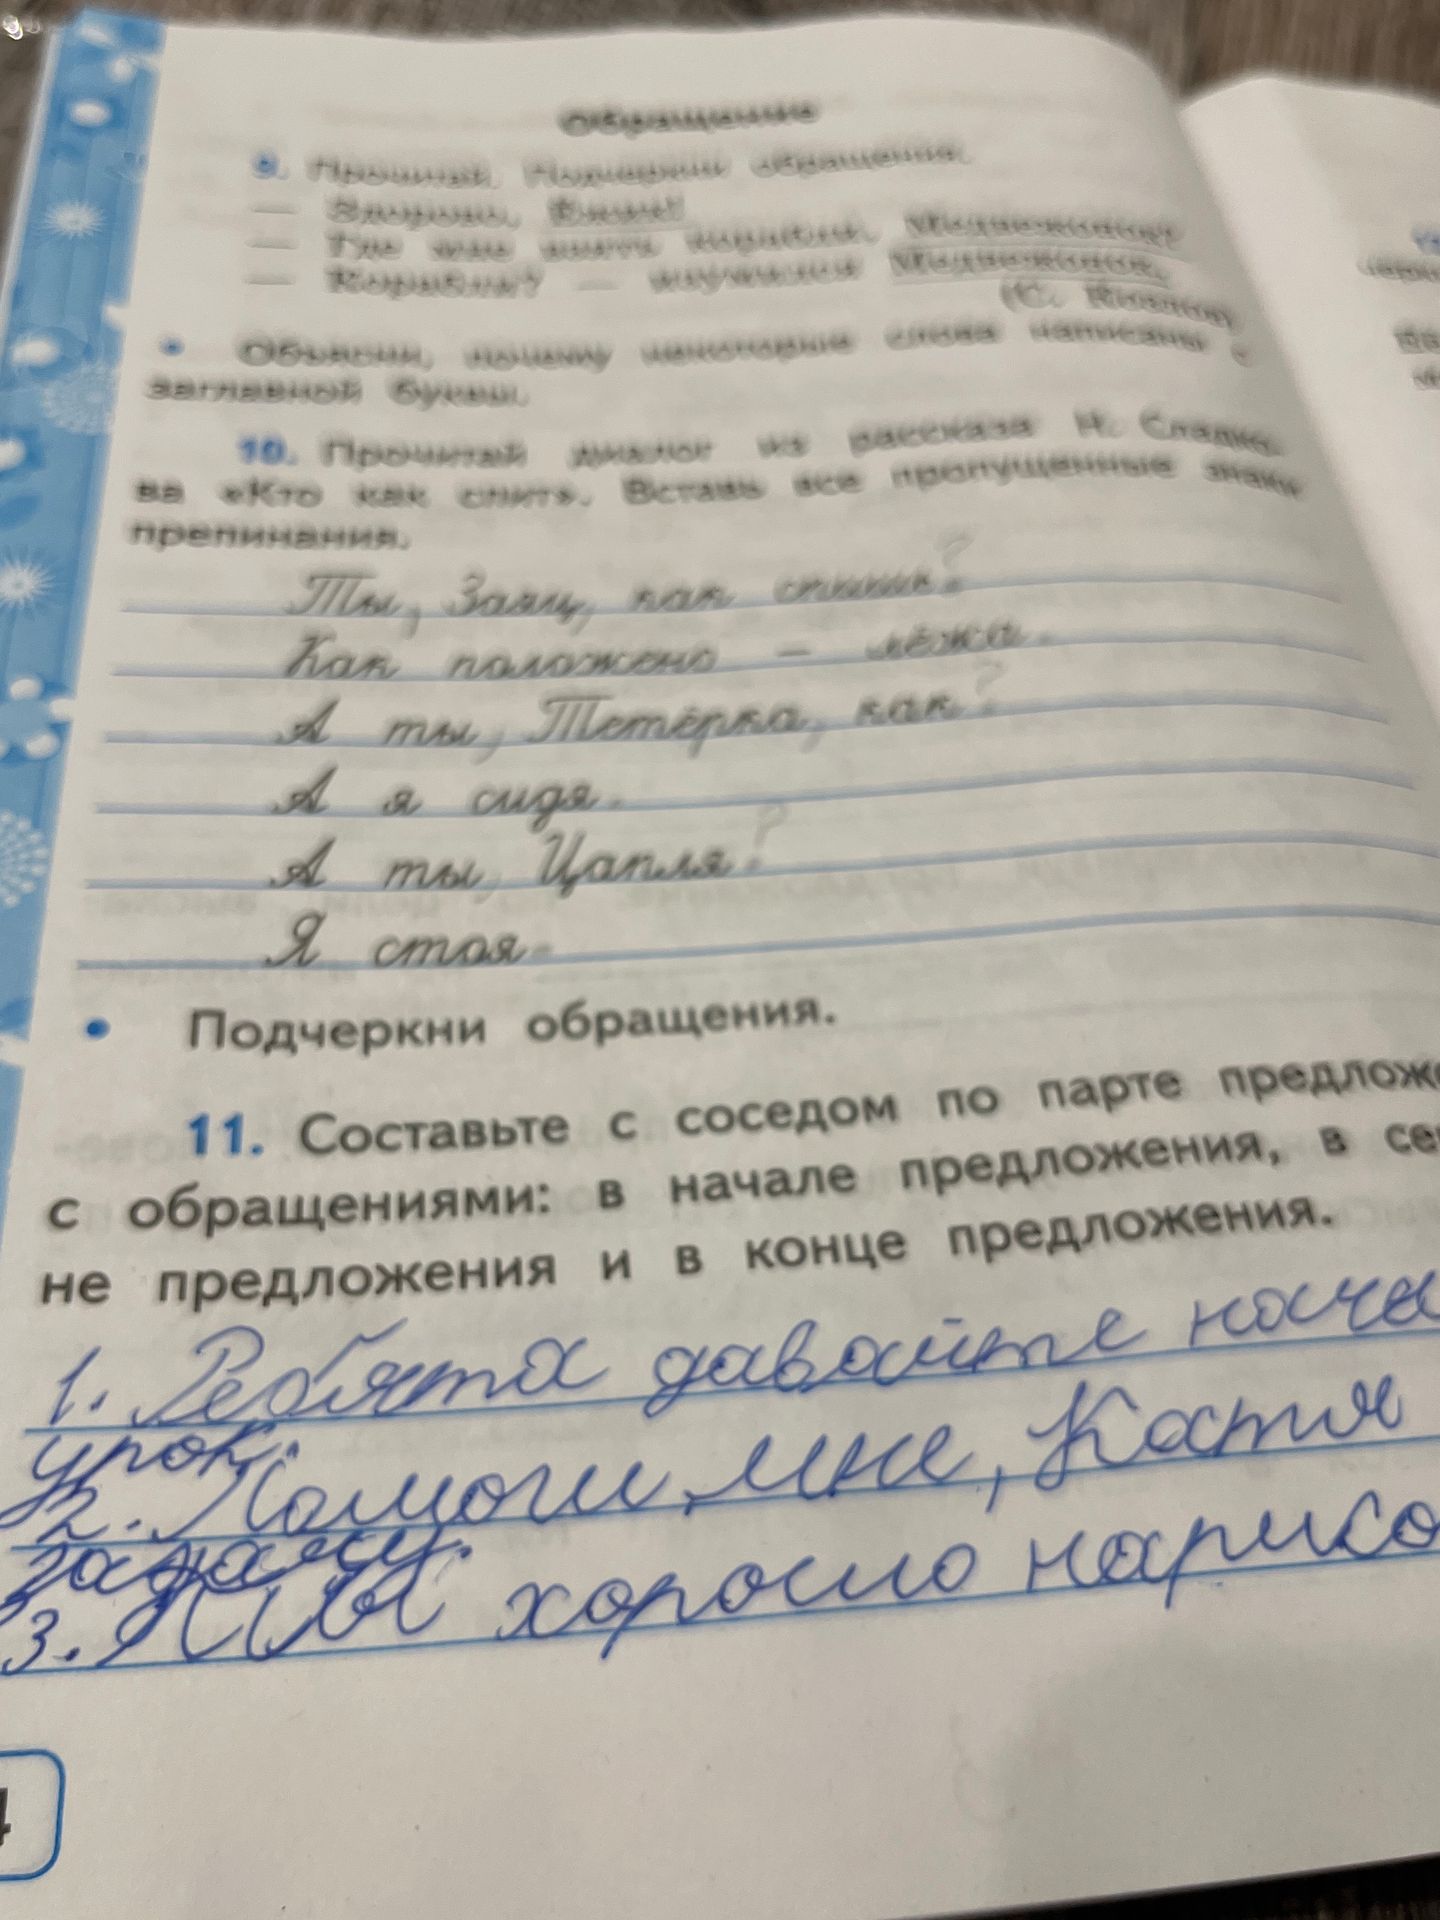 Обращение
9. Прочитай. Подчеркни обращения.
— Здорово, Ёжик!
— Где мои
— Корабли? — Медвежонок.
• Объясни, почему некоторые слова написаны с
заглавной буквы.
10. Прочитай диалог из рассказа Н. Сладко-
ва «Кто как спит». Вставь все пропущенные знаки
препинания.
Ты, Заяц, как спишь?
Как положено – лёжа.
А ты, Тетёрка, как?
А я сидя.
А ты, Цапля?
Я стоя.
• Подчеркни обращения.
11. Составьте с соседом по парте предложе
с обращениями: в начале предложения, в се
не предложения и в конце предложения.
1. Ребята давайте нача
урок.
2. Помоги, мне, Костя
задачу.
3. Ты хорошо нарисо
4